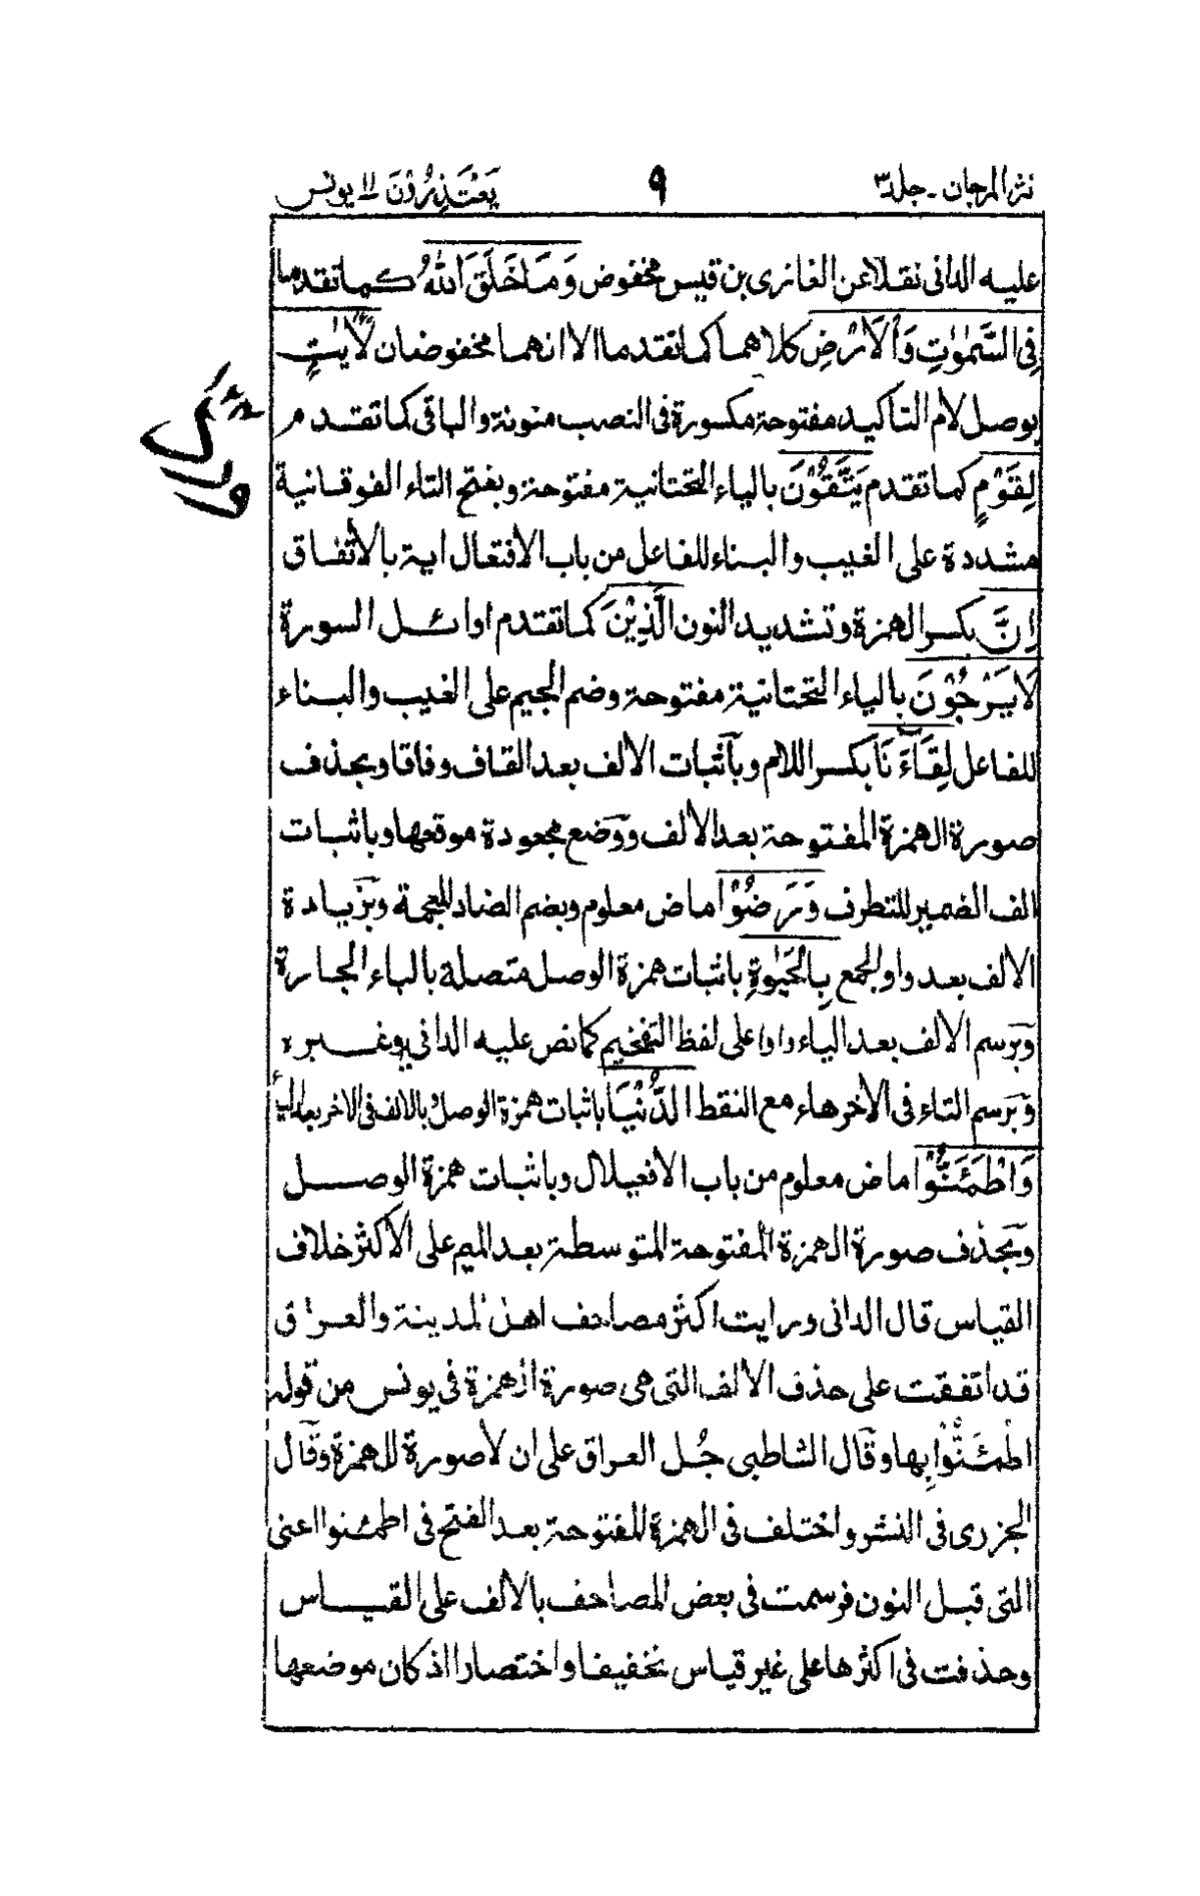 نثر المرجان - جلد ٣
٩
يَعْتَذِرُوْنَ ١١ يونس
عليه الدانى نقلا عن الغازى بن قيس مخفوض وَمَا خَلَقَ اللّٰهُ كما تقدما
فِى السَّمٰوٰتِ وَالْاَرْضِ كلاهما كما تقدما الا انهما مخفوضان لَاٰيٰتٍ
بوصل لام التاكيد مفتوحة مكسورة فى النصب منونة والباقى كما تقدم
لِقَوْمٍ كما تقدم يَتَّقُوْنَ بالياء التحتانية مفتوحة وبفتح التاء الفوقانية
مشددة على الغيب والبناء للفاعل من باب الافتعال اية بالاتفاق
اِنَّ بكسر الهمزة وتشديد النون الَّذِيْنَ كما تقدم اوائل السورة
لَا يَرْجُوْنَ بالياء التحتانية مفتوحة وضم الجيم على الغيب والبناء
للفاعل لِقَآءَنَا بكسر اللام وباثبات الالف بعد القاف وفاقا وبحذف
صورة الهمزة المفتوحة بعد الالف ووضع مجعودة موقعها وباثبات
الف الضمير للتطرف وَرَضُوْا ماض معلوم وبضم الضاد المعجمة وبزيادة
الالف بعد واو الجمع بِالْحَيٰوةِ باثبات همزة الوصل متصلة بالباء الجارة
وبرسم الالف بعد الياء واوا على لفظ التفخيم كما نص عليه الدانى وغيره
وبرسم التاء فى الاخر هاء مع النقط الدُّنْيَا باثبات همزة الوصل بالالف فى الاخر بعد الياء
وَاطْمَئَنُّوْا ماض معلوم من باب الافعيلال وباثبات همزة الوصل
وبحذف صورة الهمزة المفتوحة المتوسطة بعد الميم على الاكثر خلاف
القياس قال الدانى ورايت اكثر مصاحف اهل المدينة والعراق
قد اتفقت على حذف الالف التى هى صورة الهمزة فى يونس من قوله
اطمَئَنُّوْا بِها وقال الشاطبى جُل العراق على ان لا صورة للهمزة وقال
الجزرى فى النشر واختلف فى الهمزة المفتوحة بعد الفتح فى اطمئنوا اعنى
التى قبل النون فرسمت فى بعض المصاحف بالالف على القياس
وحذفت فى اكثرها على غير قياس تخفيفا واختصارا اذ كان موضعها